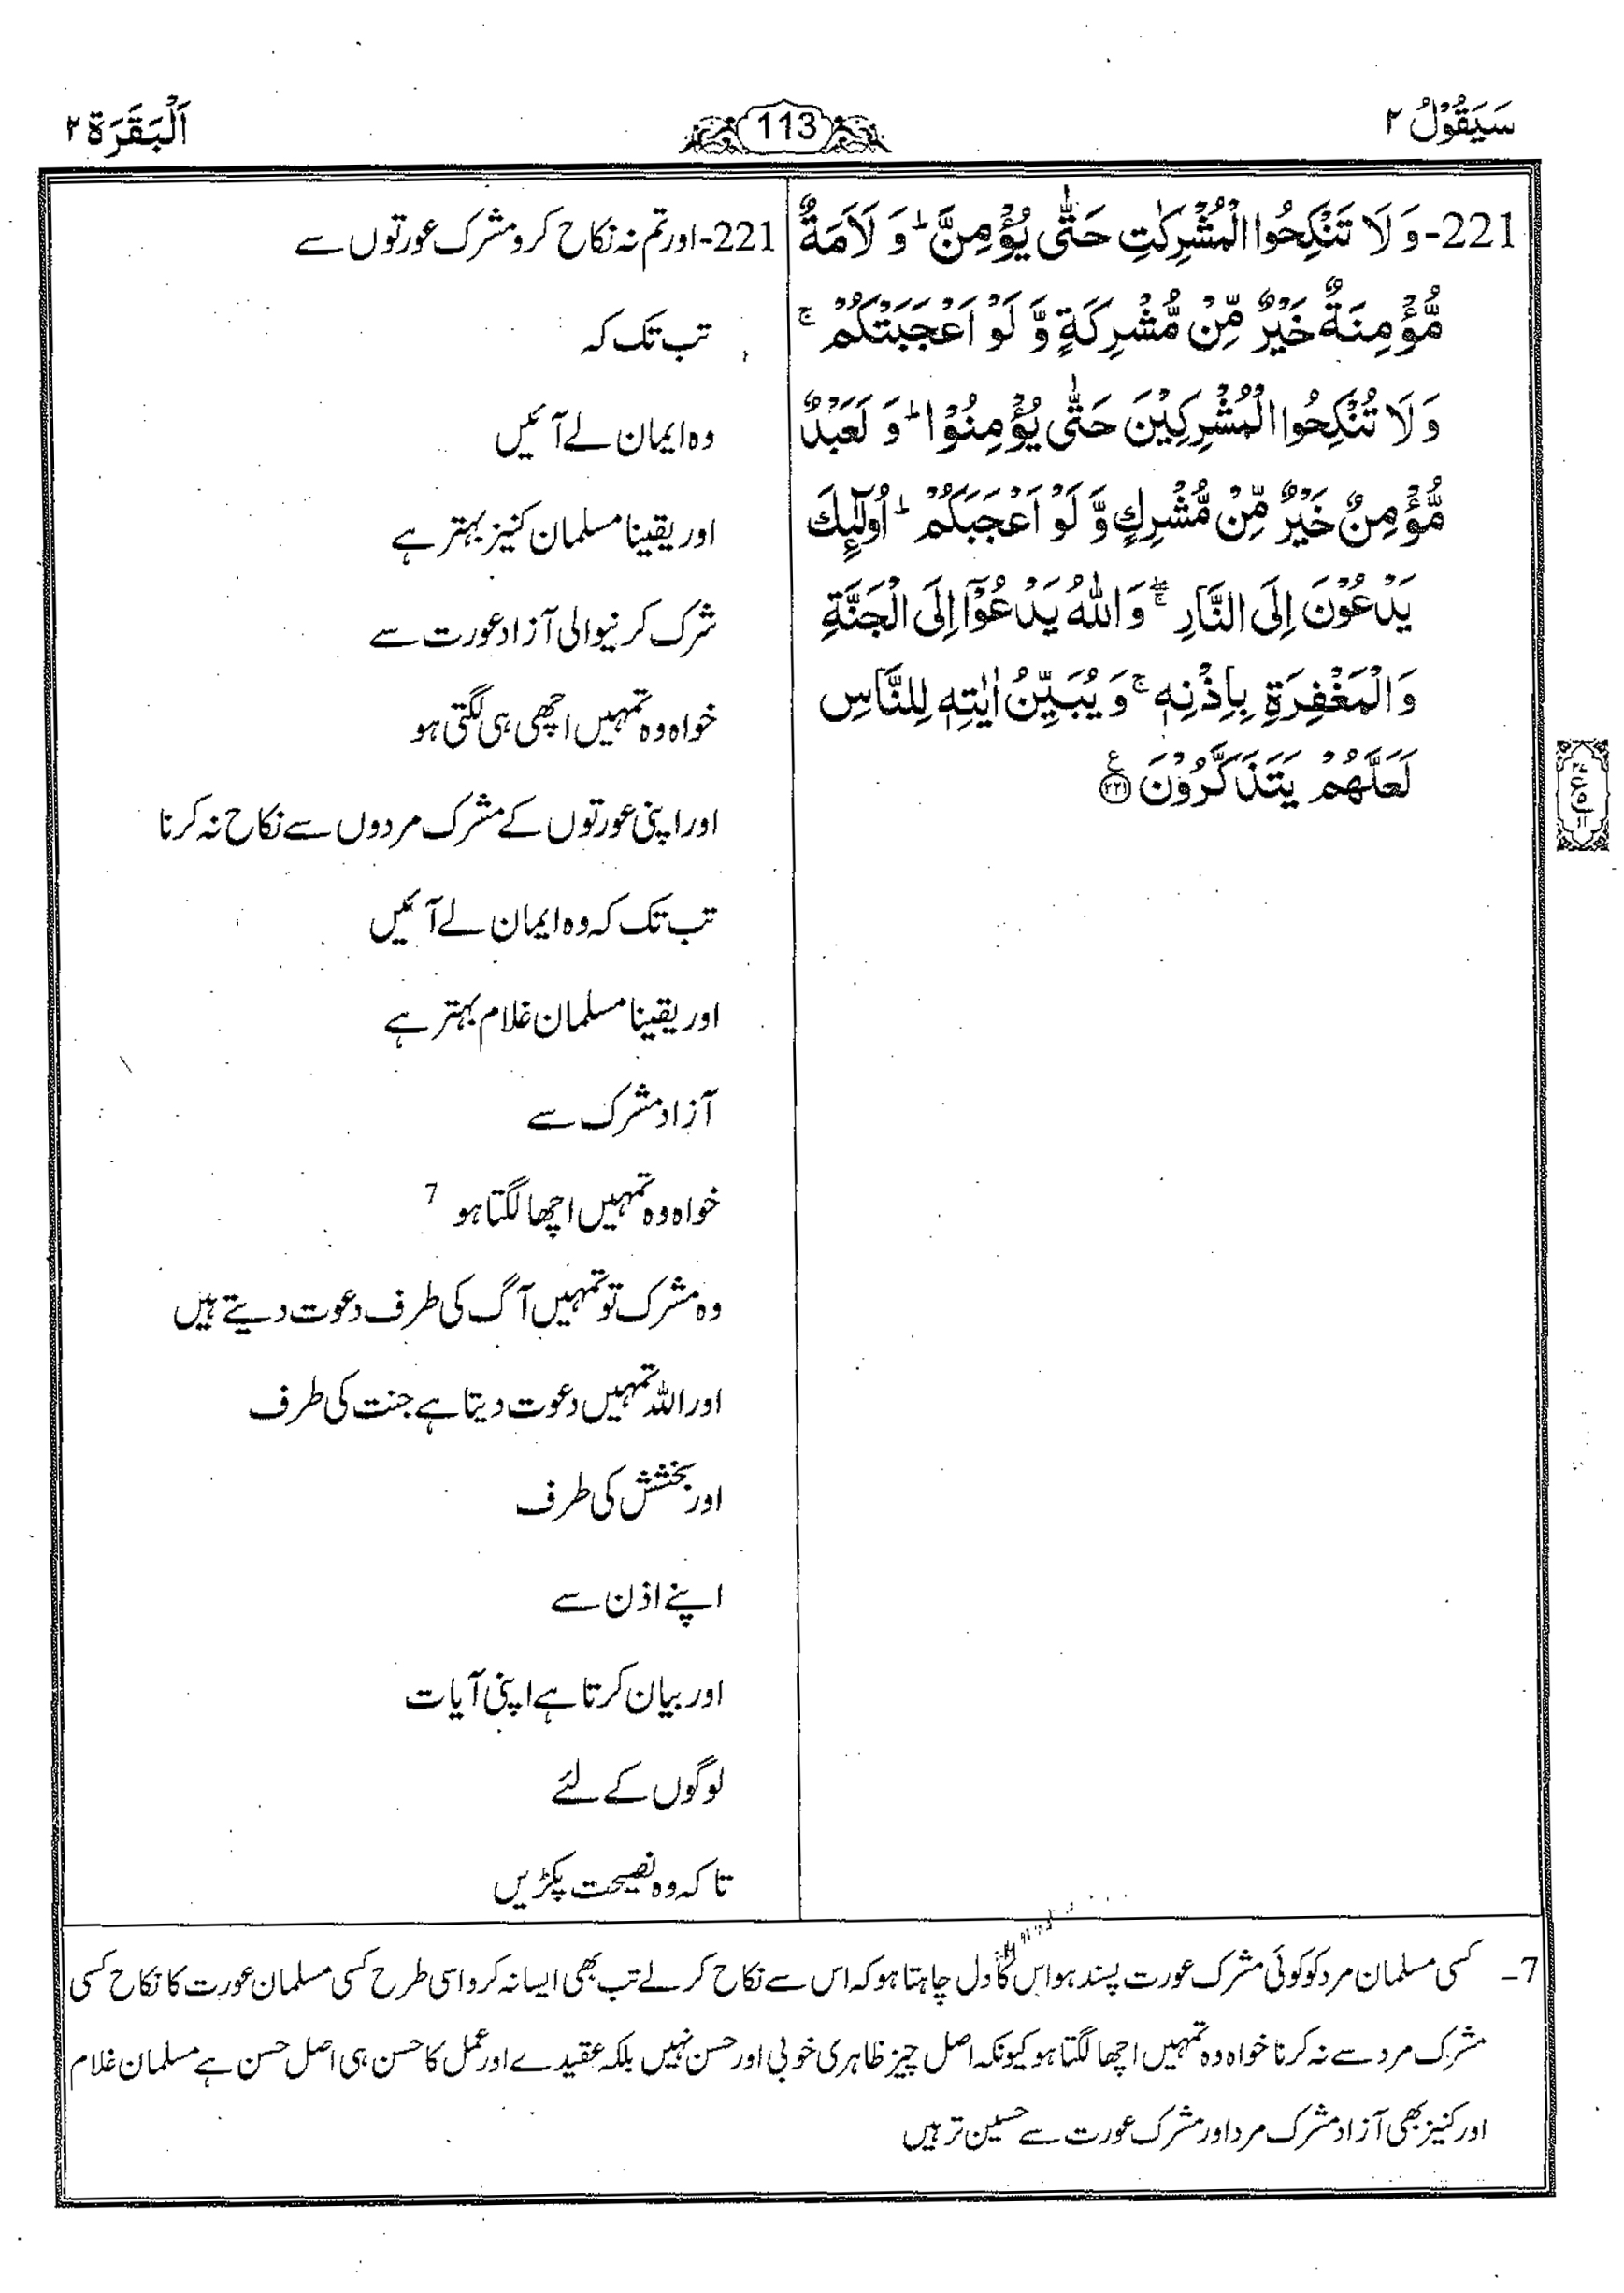 سَيَقُوْلُ ٢
113
اَلْبَقَرَة ٢
221-وَ لَا تَنْكِحُوا الْمُشْرِكٰتِ حَتّٰى يُؤْمِنَّ ؕ وَ لَاَمَةٌ
مُّؤْمِنَةٌ خَيْرٌ مِّنْ مُّشْرِكَةٍ وَّ لَوْ اَعْجَبَتْكُمْ ۚ
وَ لَا تُنْكِحُوا الْمُشْرِكِيْنَ حَتّٰى يُؤْمِنُوْا ؕ وَ لَعَبْدٌ
مُّؤْمِنٌ خَيْرٌ مِّنْ مُّشْرِكٍ وَّ لَوْ اَعْجَبَكُمْ ؕ اُولٰٓئِكَ
يَدْعُوْنَ اِلَى النَّارِ ۚۖ وَ اللّٰهُ يَدْعُوْٓا اِلَى الْجَنَّةِ
وَ الْمَغْفِرَةِ بِاِذْنِهٖ ۚ وَ يُبَيِّنُ اٰيٰتِهٖ لِلنَّاسِ
لَعَلَّهُمْ يَتَذَكَّرُوْنَ ﴿٢٢١﴾ ع
221-اور تم نہ نکاح کرو مشرک عورتوں سے
تب تک کہ
وہ ایمان لے آئیں
اور یقینا مسلمان کنیز بہتر ہے
شرک کرنیوالی آزاد عورت سے
خواہ وہ تمہیں اچھی ہی لگتی ہو
اور اپنی عورتوں کے مشرک مردوں سے نکاح نہ کرنا
تب تک کہ وہ ایمان لے آئیں
اور یقینا مسلمان غلام بہتر ہے
آزاد مشرک سے
خواہ وہ تمہیں اچھا لگتا ہو 7
وہ مشرک تو تمہیں آگ کی طرف دعوت دیتے ہیں
اور اللہ تمہیں دعوت دیتا ہے جنت کی طرف
اور بخشش کی طرف
اپنے اذن سے
اور بیان کرتا ہے اپنی آیات
لوگوں کے لئے
تا کہ وہ نصیحت پکڑیں
7- کسی مسلمان مرد کو کوئی مشرک عورت پسند ہو اس کا دل چاہتا ہو کہ اس سے نکاح کر لے تب بھی ایسا نہ کرو اسی طرح کسی مسلمان عورت کا نکاح کسی
مشرک مرد سے نہ کرنا خواہ وہ تمہیں اچھا لگتا ہو کیونکہ اصل چیز ظاہری خوبی اور حسن نہیں بلکہ عقیدے اور عمل کا حسن ہی اصل حسن ہے مسلمان غلام
اور کنیز بھی آزاد مشرک مرد اور مشرک عورت سے حسین تر ہیں